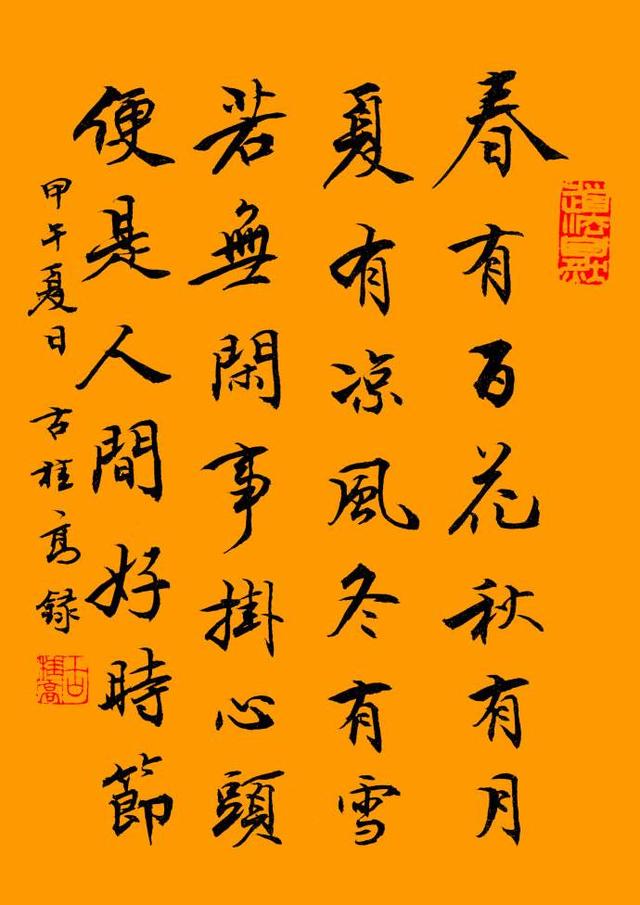 春有百花秋有月
夏有凉風冬有雪
若無閑事掛心頭
便是人間好時節
甲午夏日 古桂高録
道法自然
古桂高